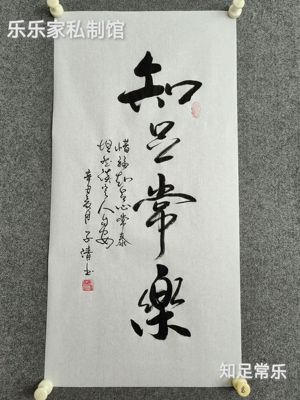 乐乐家私制馆
知足常樂
惜福知足心常泰
坦然淡定人自安
子清书
知足常乐